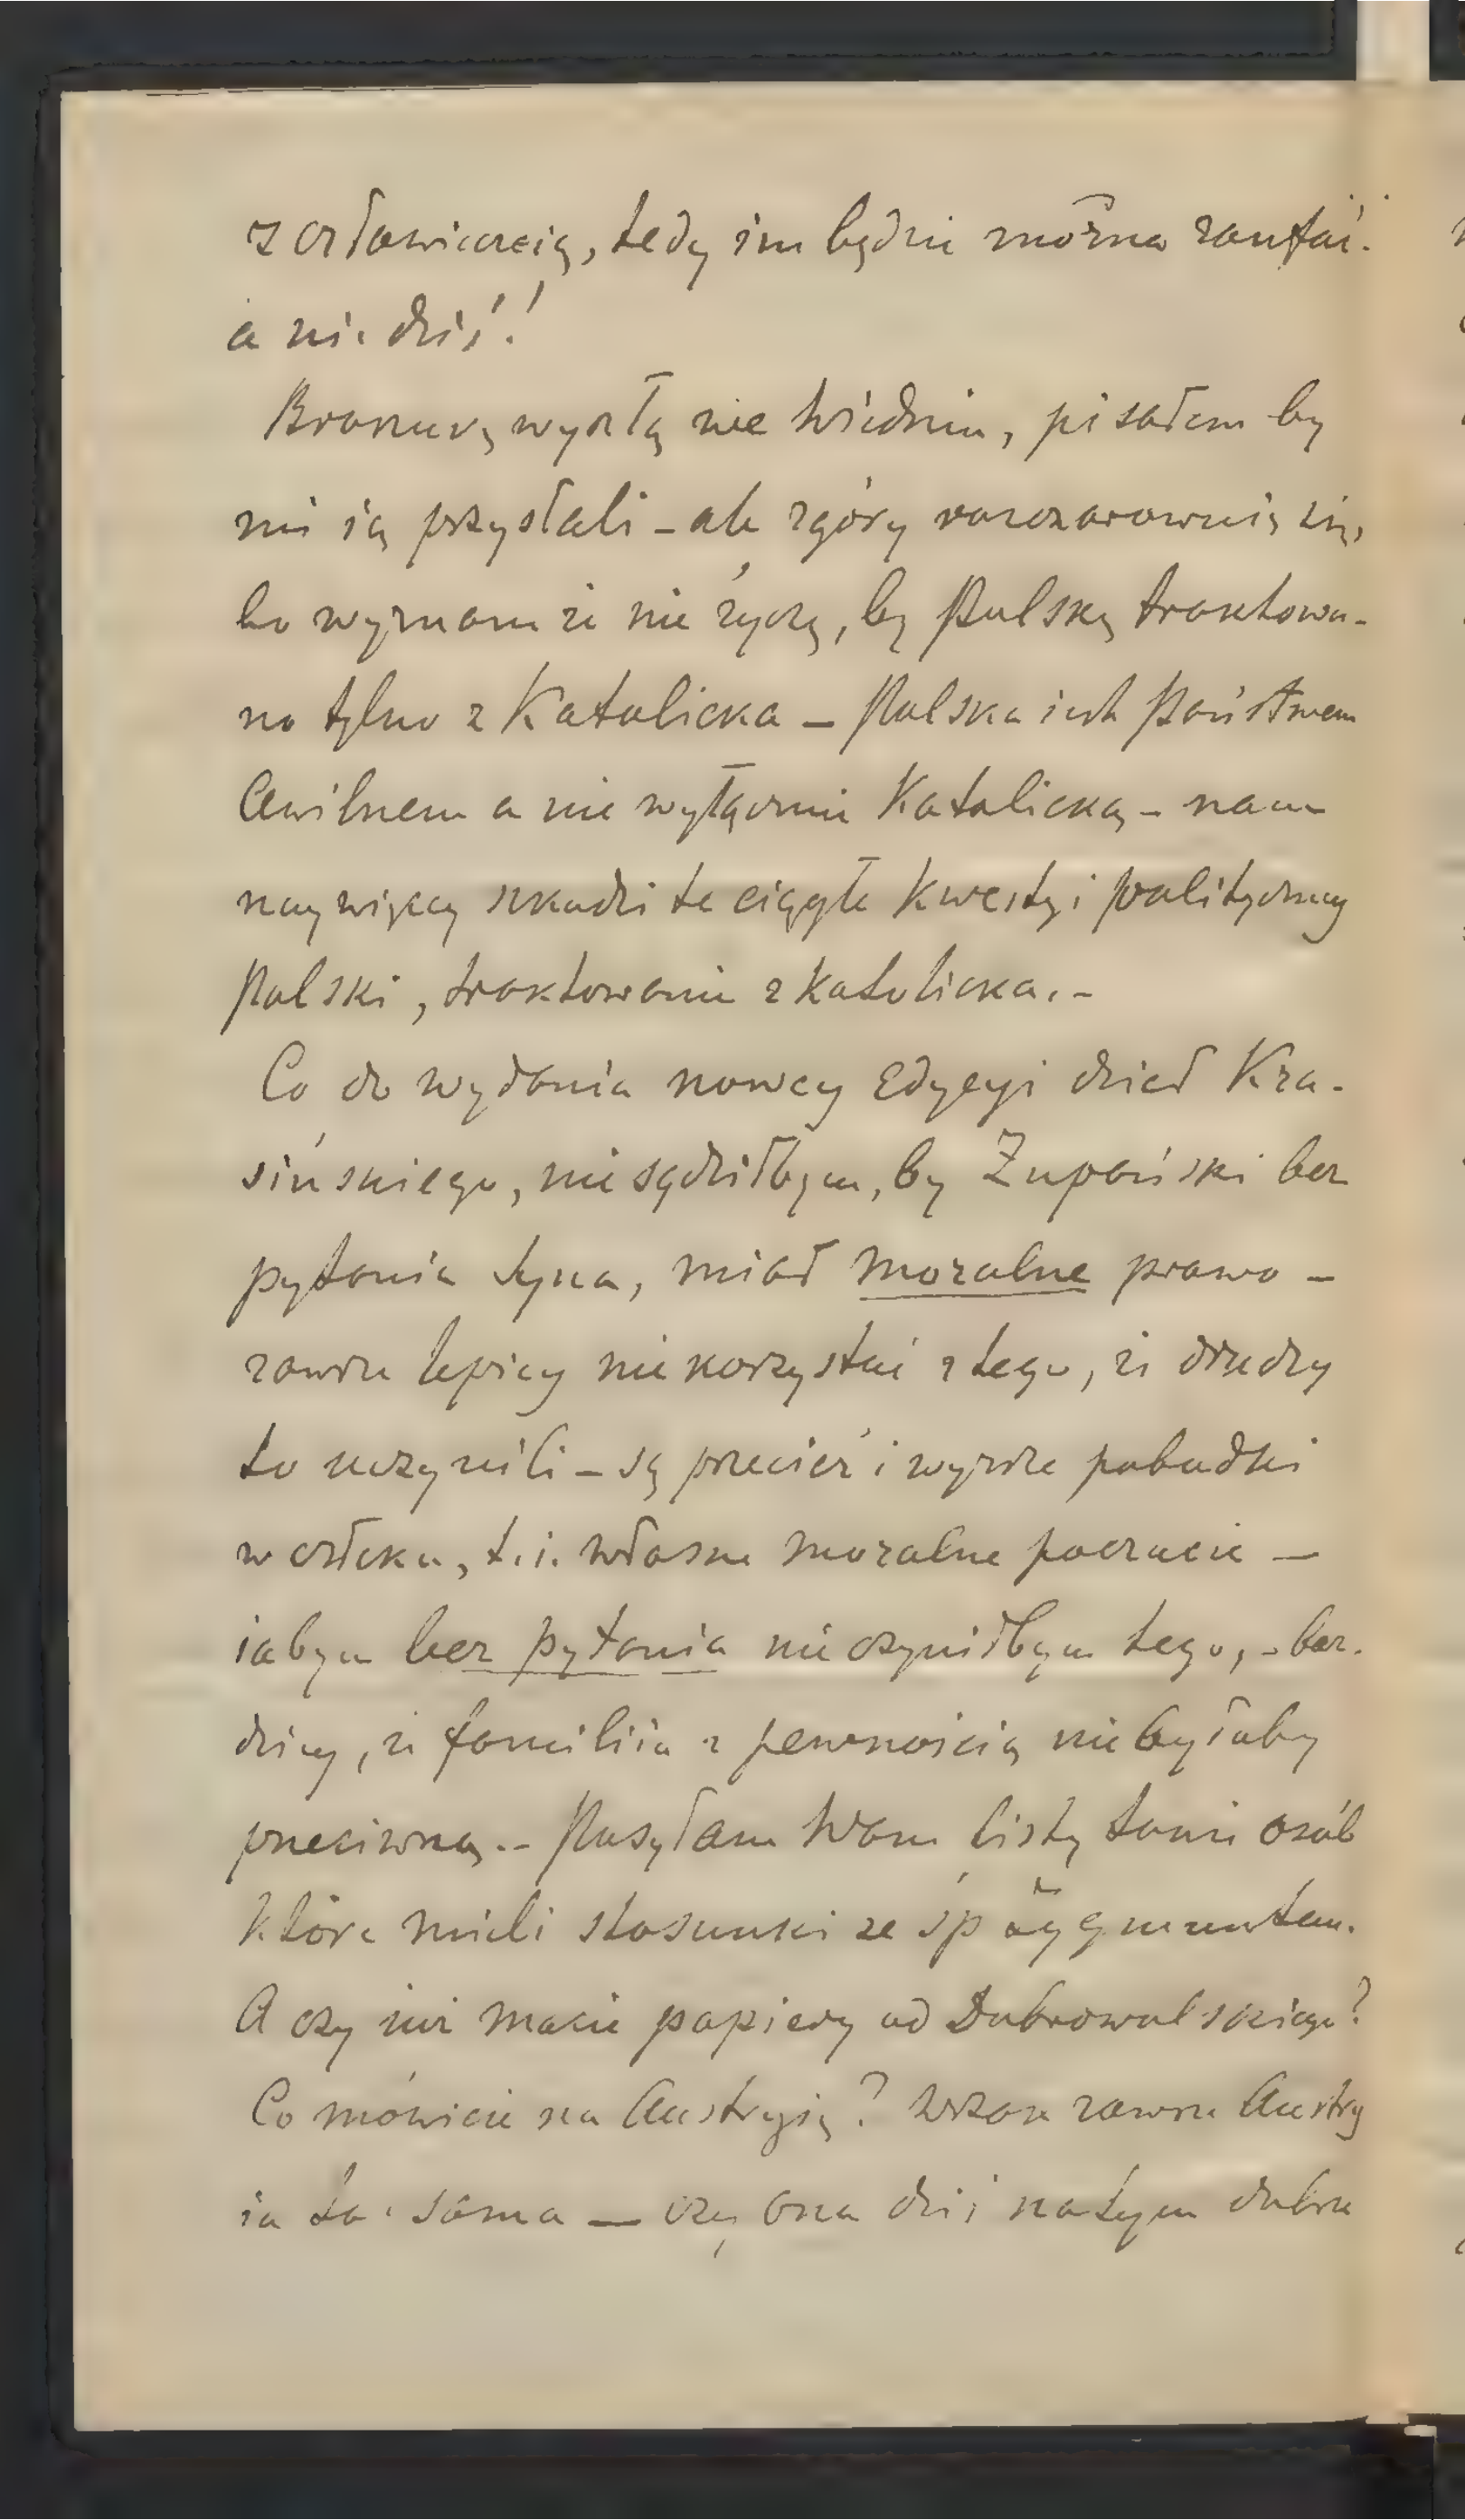 z człowieczeią, tedy im będzie można zaufać.
a nie dziś!
Broszurę wyszłą we Wiedniu, pisałem by
mi ią przysłali – ale zgóry rozczarownię się,
bo wyznam że nie życzę, by Polskę traktowa-
no tylko z Katolicka – Polska iest Państwem
Cywilnem a nie wyłącznie Katolicką – nam
naywięcey szkodzi te ciągłe kwestyi polityczney
Polski, traktowanie z katolicka. –
Co do wydania nowey Edycyi dzieł Kra-
sińskiego, nie sądziłbym, by Żupański bez
pytania Syna, miał moralne prawo –
zawsze lepiey nie korzystać z tego, że drudzy
to uczynili – są przecież i wyższe pobudki
w człeku, t.i. własne moralne poczucie –
iabym bez pytania nie czyniłbym tego, – bar-
dziey, że familiia z pewnością nie byłaby
przeciwną. – Posyłam Wam listy tamże osób
które mieli stosunki ze śp Zygmuntem.
A czy iuż macie papiery od Dobrowolskiego?
Co mówicie na Austryią? Wszak zawsze Austry
ia ta sama – czy ona dziś na tym dobrze